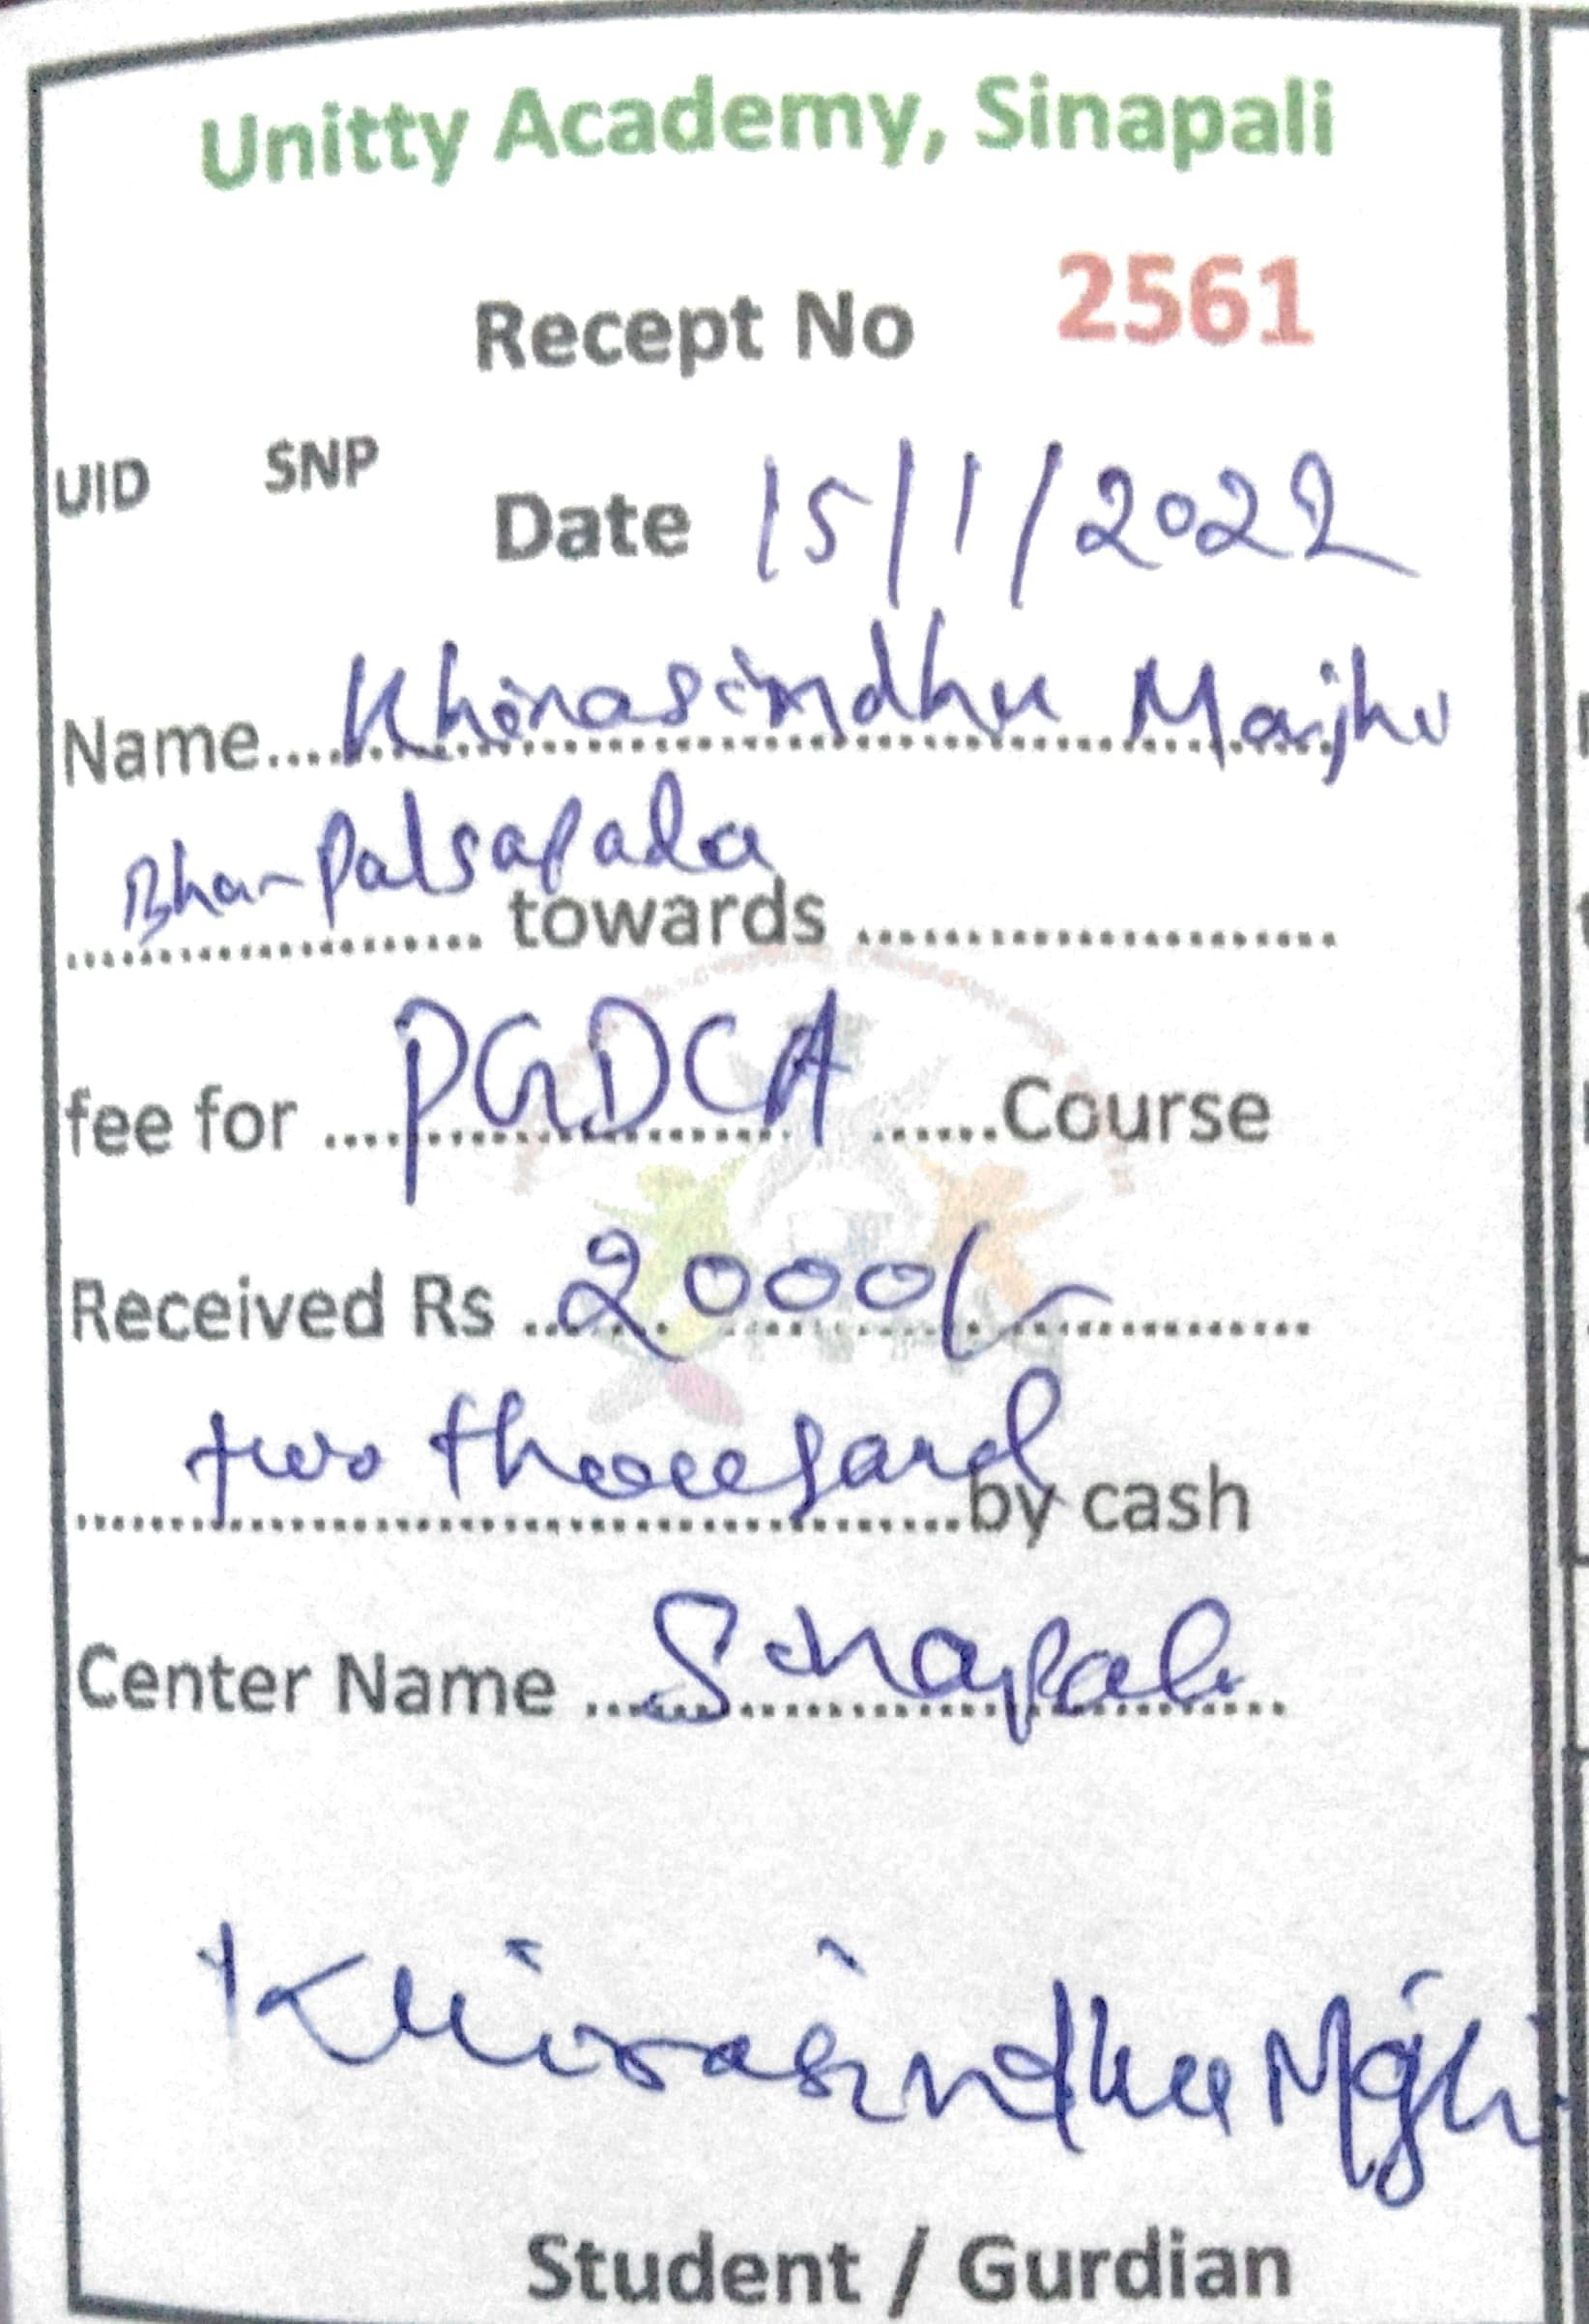 Unitty Academy, Sinapali
Recept No 2561
UID SNP
Date 15/1/2022
Name.... Khirasindhu Majhi
Bhar Palsapada
.................. towards ........................
fee for .... PGDCA ......Course
Received Rs ... 2000/- ............
two thousand by cash
Center Name ... Sinapali
Khirasindhu Majhi
Student / Gurdian